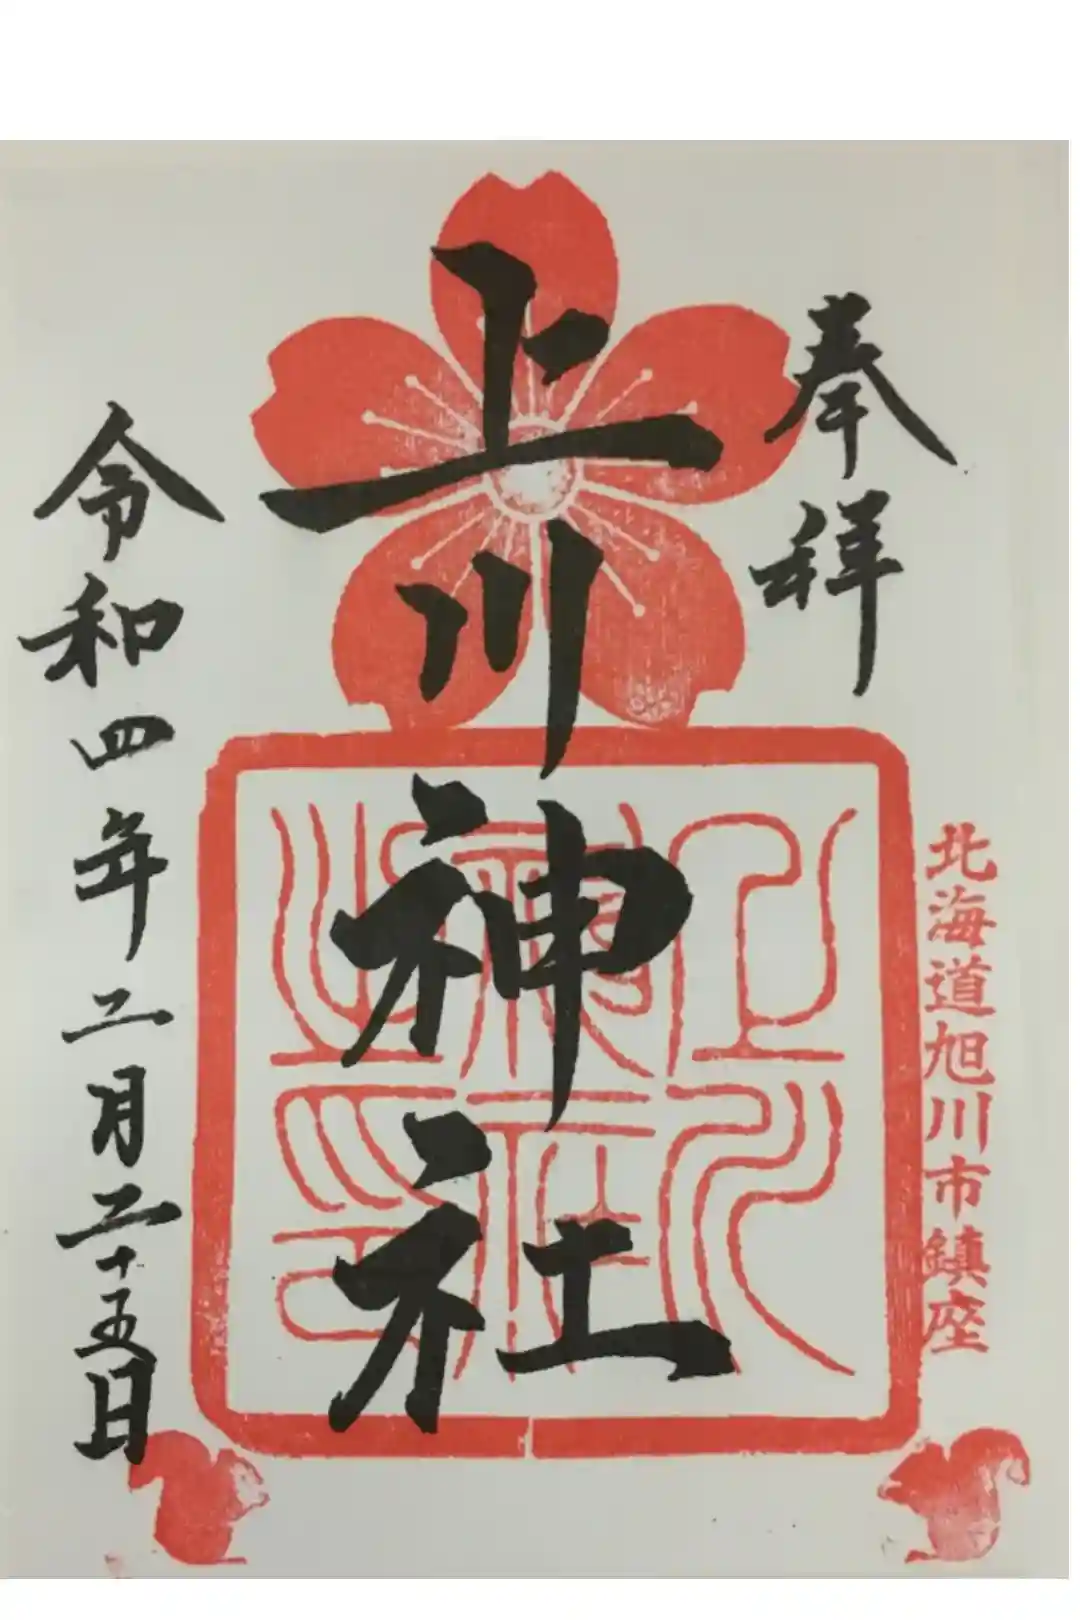 奉拝
北海道旭川市鎮座
上川神社
上川
神社
之印
令和四年二月二十五日